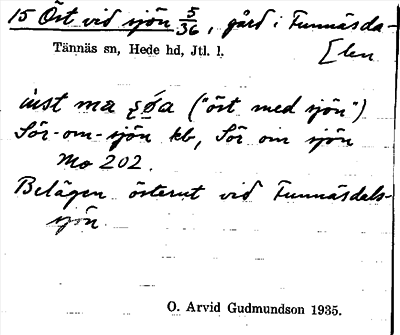 15 Öst vid sjön 5/36, gård i Funnäsda-
[len
Tännäs sn, Hede hd, Jtl. l.
öst ma ʂøa ("öst med sjön")
Sör-om-sjön kb, Sör om sjön
Mo 202.
Belägen österut vid Funnäsdals-
sjön.
O. Arvid Gudmundson 1935.